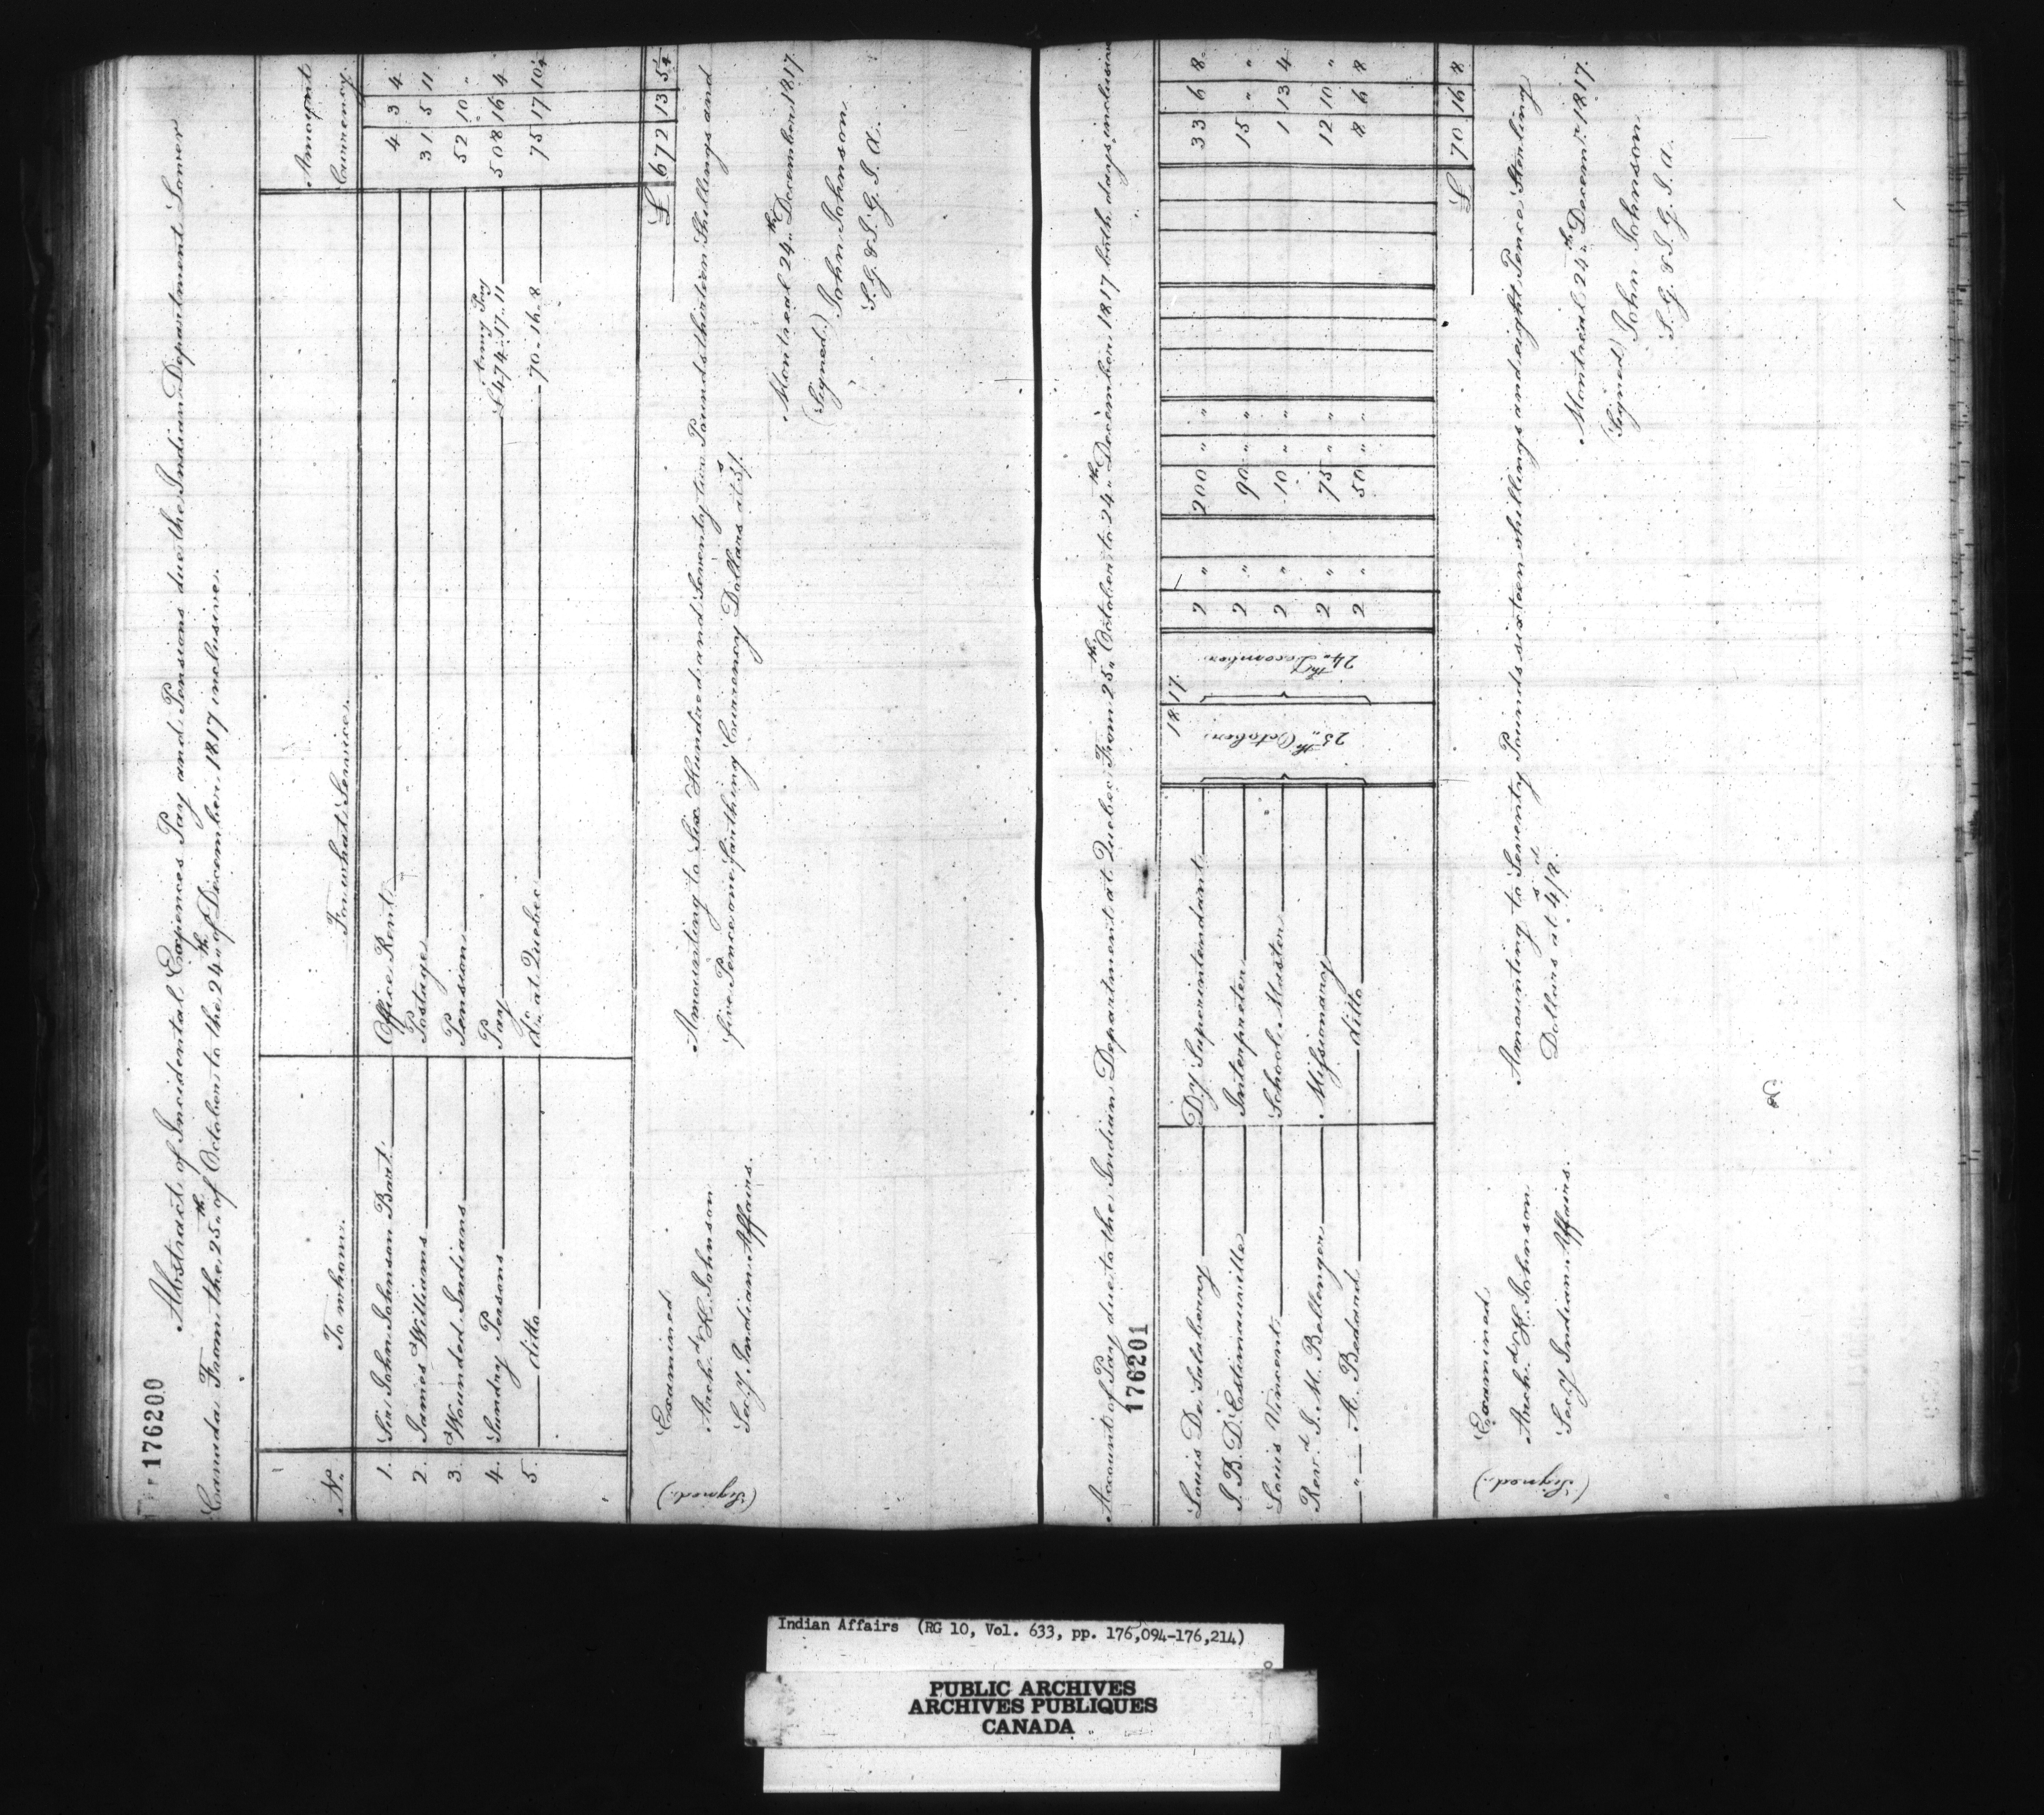 176200
Abstract of Incidental Expences Pay and Pensions due the Indian Department Lower
Canada From the 25th of October to the 24th of December 1817 inclusive.
No. To whom. For what Service. Amount Currency
1. Sir John Johnson Bart. Office Rent 4 3 4
2. James Williams Postage 31 5 11
3. Wounded Indians Pension 52 10 "
4. Sundry Persons Pay £474.17.11 508 16 4
5. ditto do. at Quebec 70.16.8 75 17 10¼
£ 672 13 5¼
Amounting to Six Hundred and Seventy two Pounds thirteen Shillings and
five Pence one farthing Currency Dollars at 5/.
Montreal 24th December 1817.
(Signed) John Johnson
S. G. & I. G. I. A.
Examined
(Signed.) Archd. K. Johnson
Secy. Indian Affairs.
Account of Pay due to the Indian Department at Quebec From 25th October to 24th December 1817 both days inclusive
176201
1817
25th October
24th December
Louis De Salaberry Dy. Superintendant 2 " 200 " " 33 6 8
J. B. D'Estimauville Interpreter 2 " 90 " " 15 " "
Louis Vincent School Master 2 " 10 " " 1 13 4
Revd. J. M. Bellenger Missionary 2 " 75 " " 12 10 "
" A. Bedard ditto 2 " 50 " " 8 6 8
£ 70 16 8
Amounting to Seventy Pounds sixteen shillings and eight Pence Sterling
Dollars at 4s/8d.
Montreal 24th Decemr. 1817.
(Signed) John Johnson
S. G. & I. G. I. A.
Examined
(Signed.) Archd. K. Johnson
Secy. Indian Affairs.
Indian Affairs (RG 10, Vol. 633, pp. 176,094-176,214)
PUBLIC ARCHIVES
ARCHIVES PUBLIQUES
CANADA